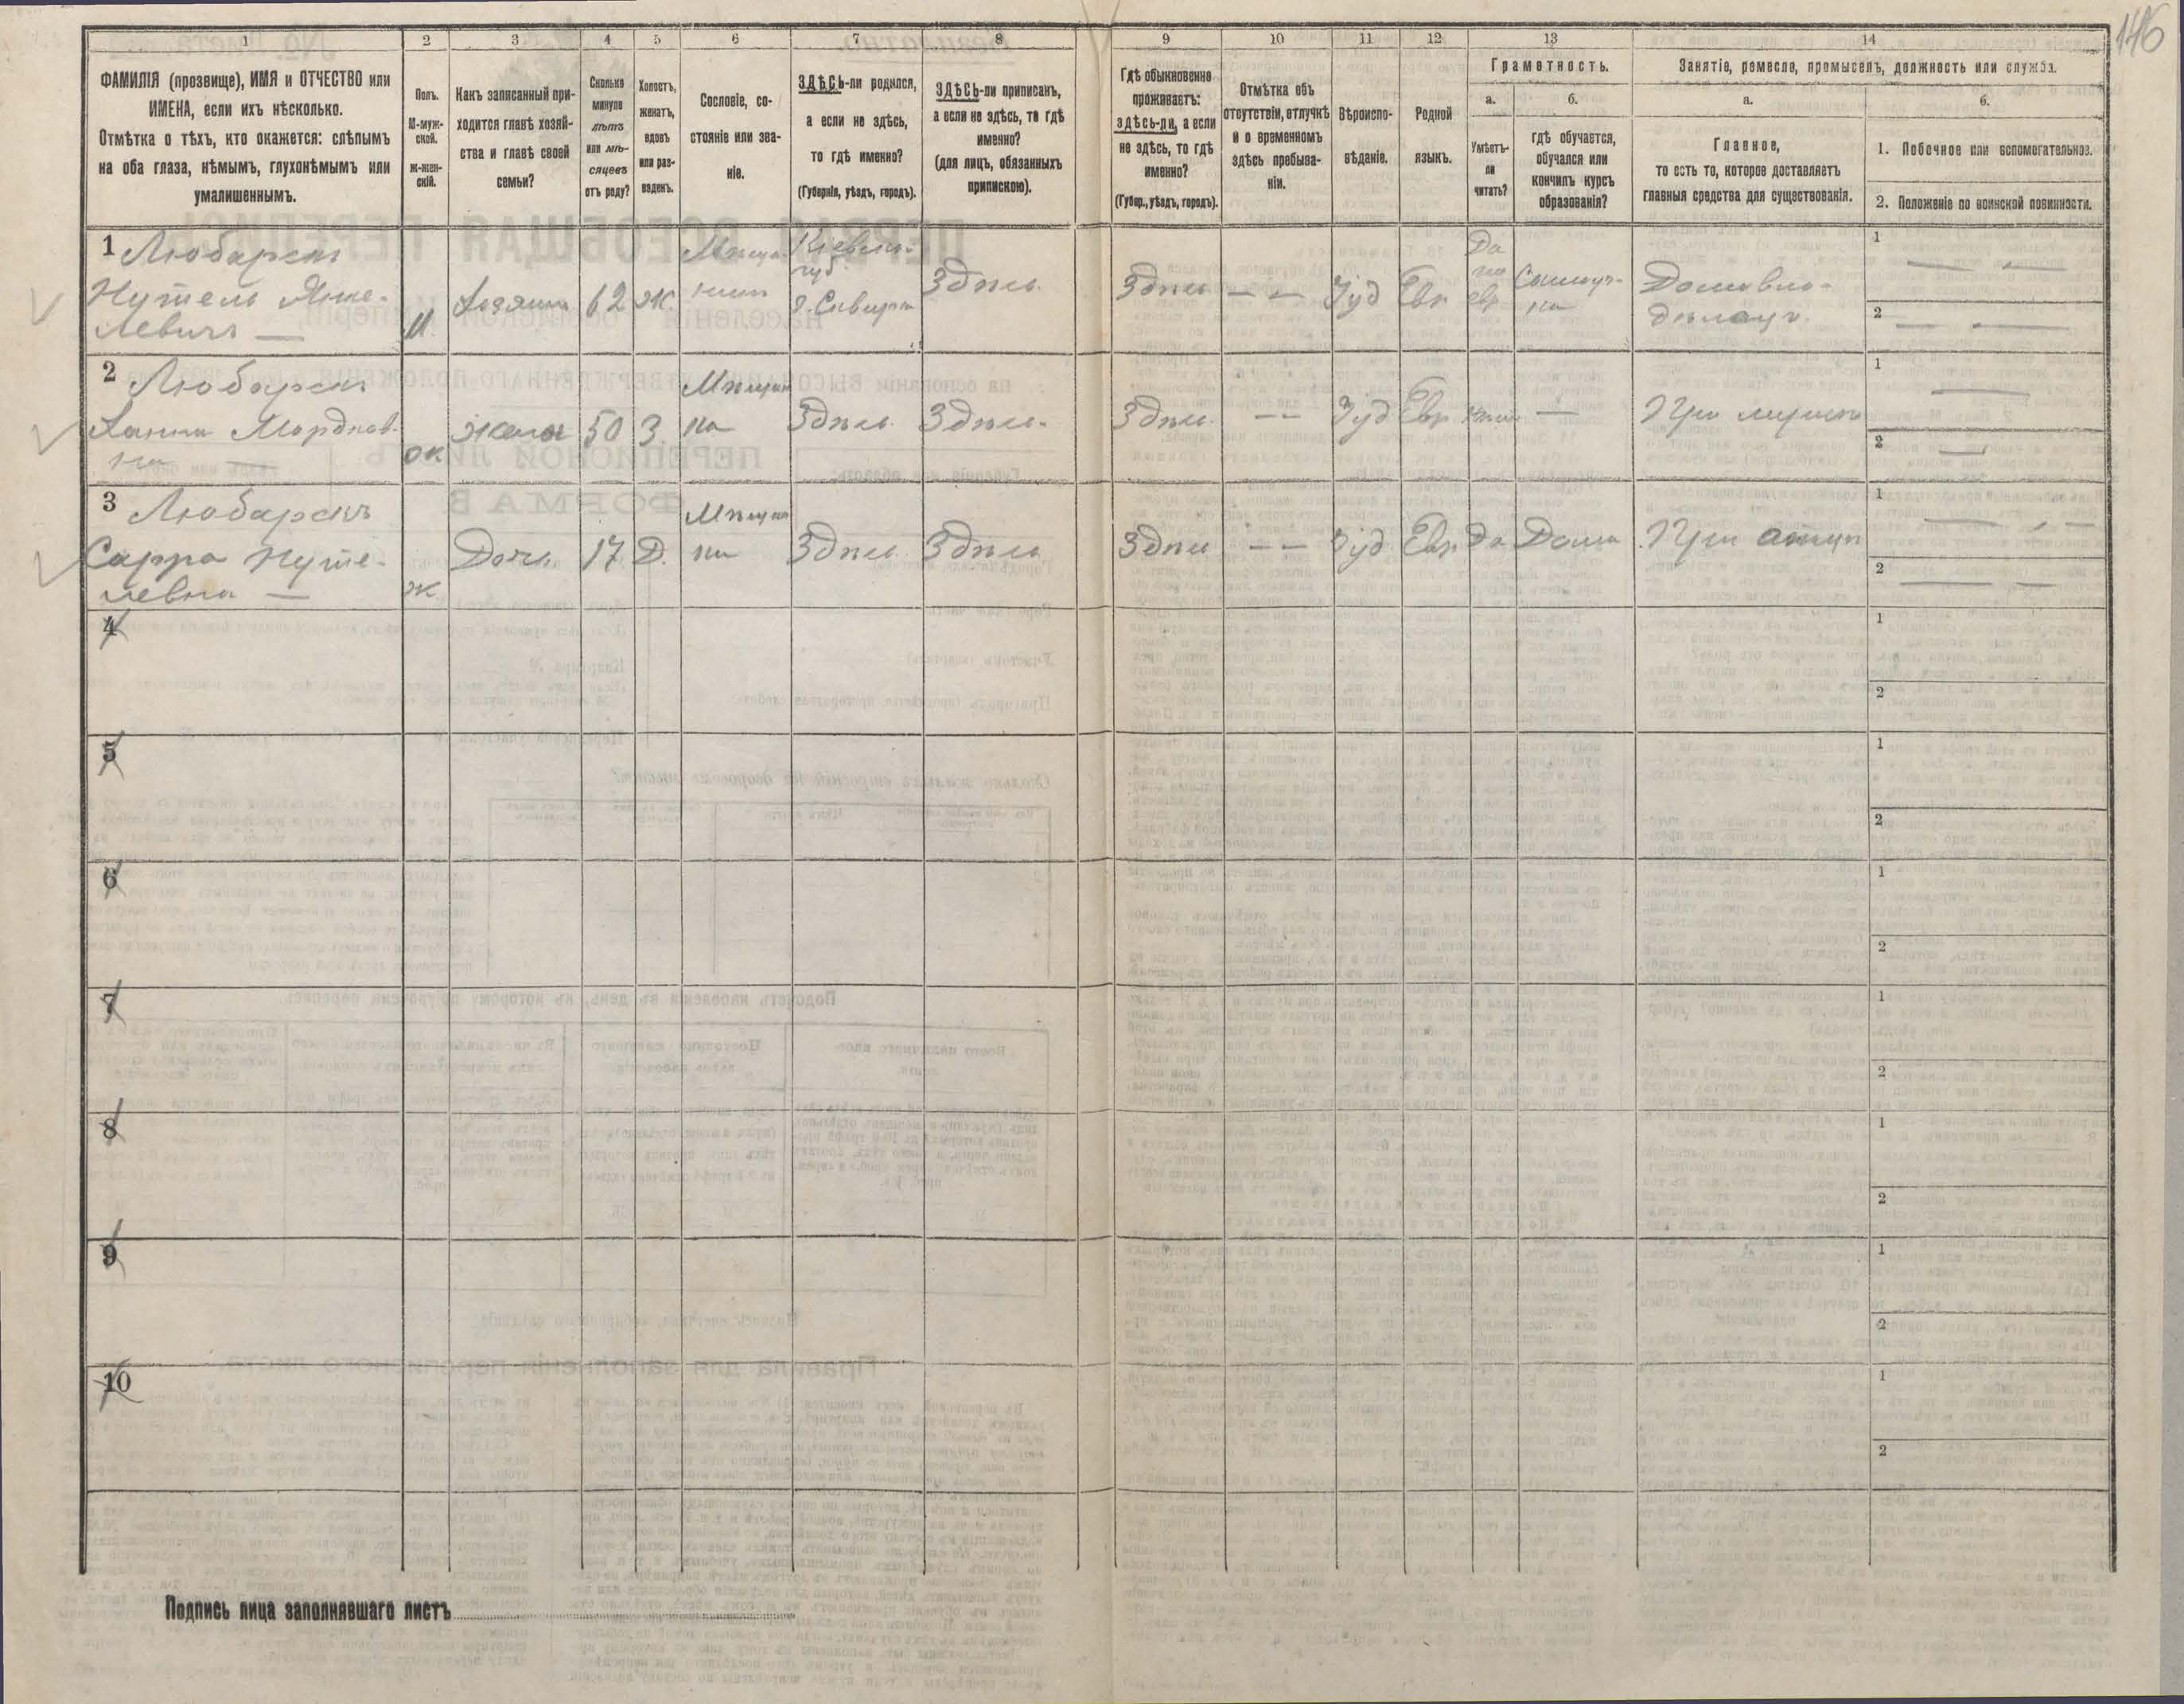 146
1
2
3
4
5
6
7
8
9
10
11
12
13
14
ФАМИЛІЯ (прозвище), ИМЯ и ОТЧЕСТВО или
ИМЕНА, если ихъ нѣсколько.
Отмѣтка о тѣхъ, кто окажется: слѣпымъ
на оба глаза, нѣмымъ, глухонѣмымъ или
умалишеннымъ.
Полъ.
М-муж-
ской.
ж-жен-
скій.
Какъ записанный при-
ходится главѣ хозяй-
ства и главѣ своей
семьи?
Сколько
минуло
лѣтъ
или мѣ-
сяцевъ
отъ роду?
Холостъ,
женатъ,
вдовъ
или раз-
веденъ.
Сословіе, со-
стояніе или зва-
ніе.
ЗДѢСЬ-ли родился,
а если не здѣсь,
то гдѣ именно?
(Губернія, уѣздъ, городъ).
ЗДѢСЬ-ли приписанъ,
а если не здѣсь, то гдѣ
именно?
(для лицъ, обязанныхъ
припискою).
Гдѣ обыкновенно
проживаетъ:
здѣсь-ли, а если
не здѣсь, то гдѣ
именно?
(Губер., уѣздъ, городъ).
Отмѣтка объ
отсутствіи, отлучкѣ
и о временномъ
здѣсь пребыва-
ніи.
Вѣроиспо-
вѣданіе.
Родной
языкъ.
Грамотность.
а.
Умѣетъ-
ли
читать?
б.
гдѣ обучается,
обучался или
кончилъ курсъ
образованія?
Занятіе, ремесло, промыселъ, должность или служба.
а.
Главное,
то есть то, которое доставляетъ
главныя средства для существованія.
б.
1. Побочное или вспомогательное.
2. Положеніе по воинской повинности.
1 Любарскъ
Нутель Янке-
левичъ —
М.
Хозяинъ
62
Ж.
Мѣща-
нинъ
Кіевск.
губ.
г. Сквира
Здѣсь
Здѣсь
— —
Іуд
Евр
Да
по
евр
Самоуч-
ка
Домовла-
дѣлецъ
1 — —
2 — —
2 Любарскъ
Ханна Мордков-
на —
ж
жена
50
З.
Мѣщан
ка
Здѣсь
Здѣсь
Здѣсь
— —
Іуд
Евр
—
При мужѣ
1 —
2 —
3 Любарскъ
Сарра Нуте-
левна —
ж
Дочь
17
Д.
Мѣщан
ка
Здѣсь
Здѣсь
Здѣсь
— —
Іуд
Евр
Да
Дома
При отцѣ
1 — —
2 — —
4
1
2
5
1
2
6
1
2
7
1
2
8
1
2
9
1
2
10
1
2
Подпись лица заполнявшаго листъ